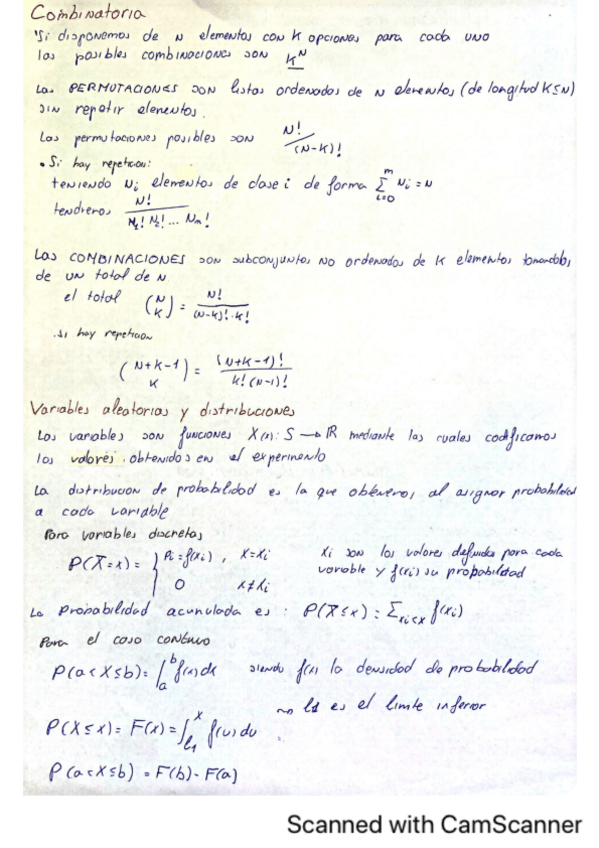 Combinatoria
Si disponemos de N elementos con K opciones para cada uno
las posibles combinaciones son K^N
Las PERMUTACIONES son listas ordenados de N elementos (de longitud K≤N)
sin repetir elementos.
Las permutaciones posibles son N!/(N-K)!
• Si hay repeticion:
teniendo Ni elementos de clase i de forma ∑_{i=0}^{m} Ni = N
tendremos N!/(N1! N2! ... Nm!)
Las COMBINACIONES son subconjuntos no ordenados de K elementos tomandolos
de un total de N
el total (N K) = N!/((N-K)!·K!)
.si hay repeticion
(N+K-1 K) = (N+K-1)!/(K!(N-1)!)
Variables aleatorias y distribuciones
Las variables son funciones X(s): S → ℝ mediante las cuales codificamos
los valores obtenidos en el experimento
La distribucion de probabilidad es la que obtenemos al asignar probabilidad
a cada variable
Para variables discretas
P(X=x) = { Pi=f(xi), x=xi
0 x≠xi
xi son los valores definidos para cada
variable y f(xi) su probabilidad
La Probabilidad acumulada es: P(X≤x) = ∑_{xi<x} f(xi)
Para el caso continuo
P(a<X≤b) = ∫_a^b f(x)dx siendo f(x) la densidad de probabilidad
P(X≤x) = F(x) = ∫_{l1}^x f(u)du → l1 es el limite inferior
P(a<X≤b) = F(b) - F(a)
Scanned with CamScanner